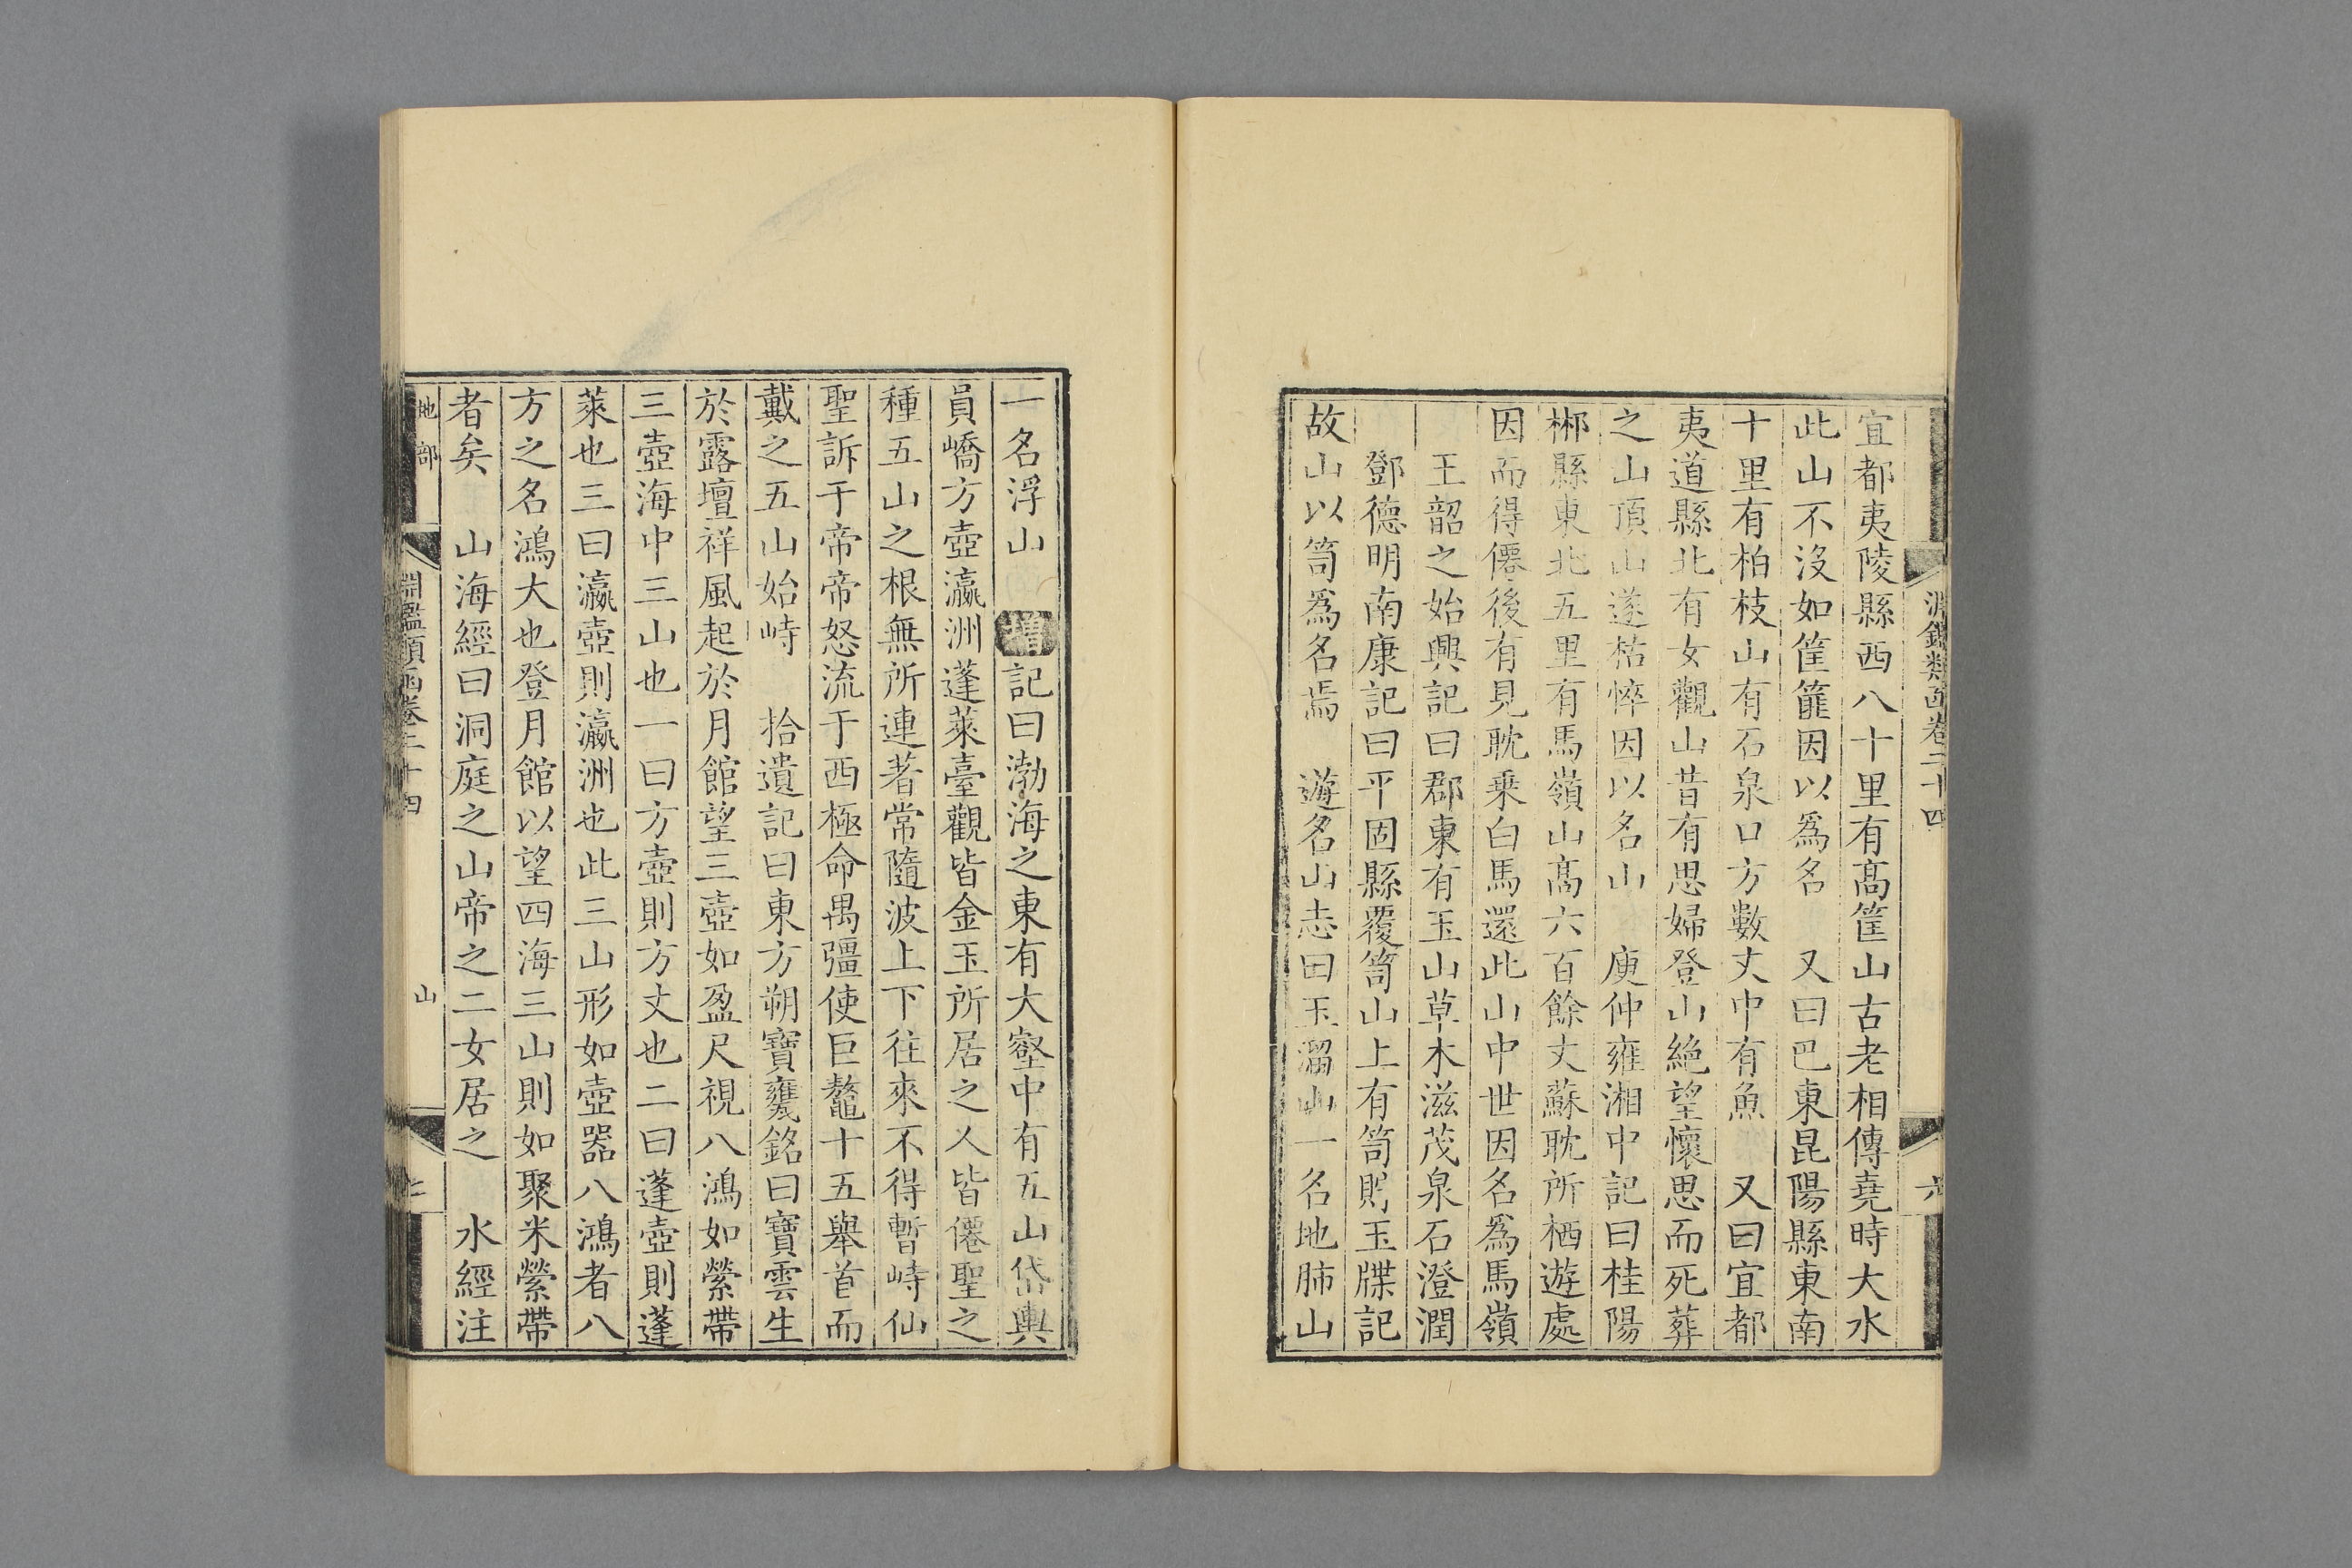 淵鑑類函卷二十四
六
宜都夷陵縣西八十里有髙筐山古老相傳堯時大水
此山不没如筐篚因以爲名　又曰巴東昆陽縣東南
十里有柏枝山有石泉口方數丈中有魚　又曰宜都
夷道縣北有女觀山昔有思婦登山絶望懷思而死葬
之山頂山遂枯悴因以名山　庾仲雍湘中記曰桂陽
郴縣東北五里有馬嶺山髙六百餘丈蘇耽所栖遊處
因而得僊後有見耽乗白馬還此山中世因名爲馬嶺
王韶之始興記曰郡東有玉山草木滋茂泉石澄潤
鄧德明南康記曰平固縣覆笥山上有笥貯玉牒記
故山以笥爲名焉　遊名山志曰玉溜山一名地肺山
一名浮山　増記曰渤海之東有大壑中有五山岱輿
員嶠方壺瀛洲蓬萊臺觀皆金玉所居之人皆僊聖之
種五山之根無所連著常隨波上下往來不得暫峙仙
聖訴于帝帝怒流于西極命禺彊使巨鼇十五舉首而
戴之五山始峙　拾遺記曰東方朔寶甕銘曰寶雲生
於露壇祥風起於月館望三壺如盈尺視八鴻如縈帶
三壺海中三山也一曰方壺則方丈也二曰蓬壺則蓬
萊也三曰瀛壺則瀛洲也此三山形如壺器八鴻者八
方之名鴻大也登月館以望四海三山則如聚米縈帶
者矣　山海經曰洞庭之山帝之二女居之　水經注
地部
淵鑑類函卷二十四
山
七